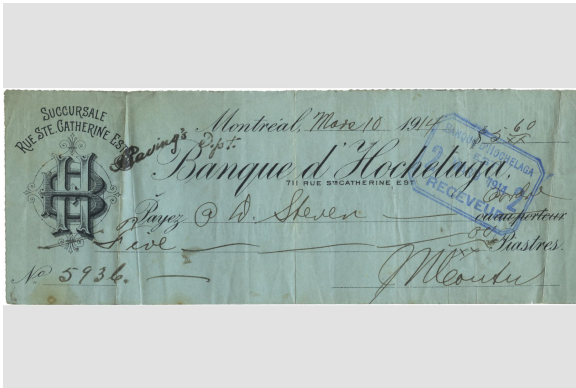 SUCCURSALE
RUE STE. CATHERINE EST
Montréal, Mars 10 1914
Saving's
Dpt.
Banque d'Hochelaga,
711 RUE STE CATHERINE EST
BANQUE D'HOCHELAGA
1914
RECEVEUR 2
Payez D. Steven
ou au porteur
Five Piastres.
No. 5936.